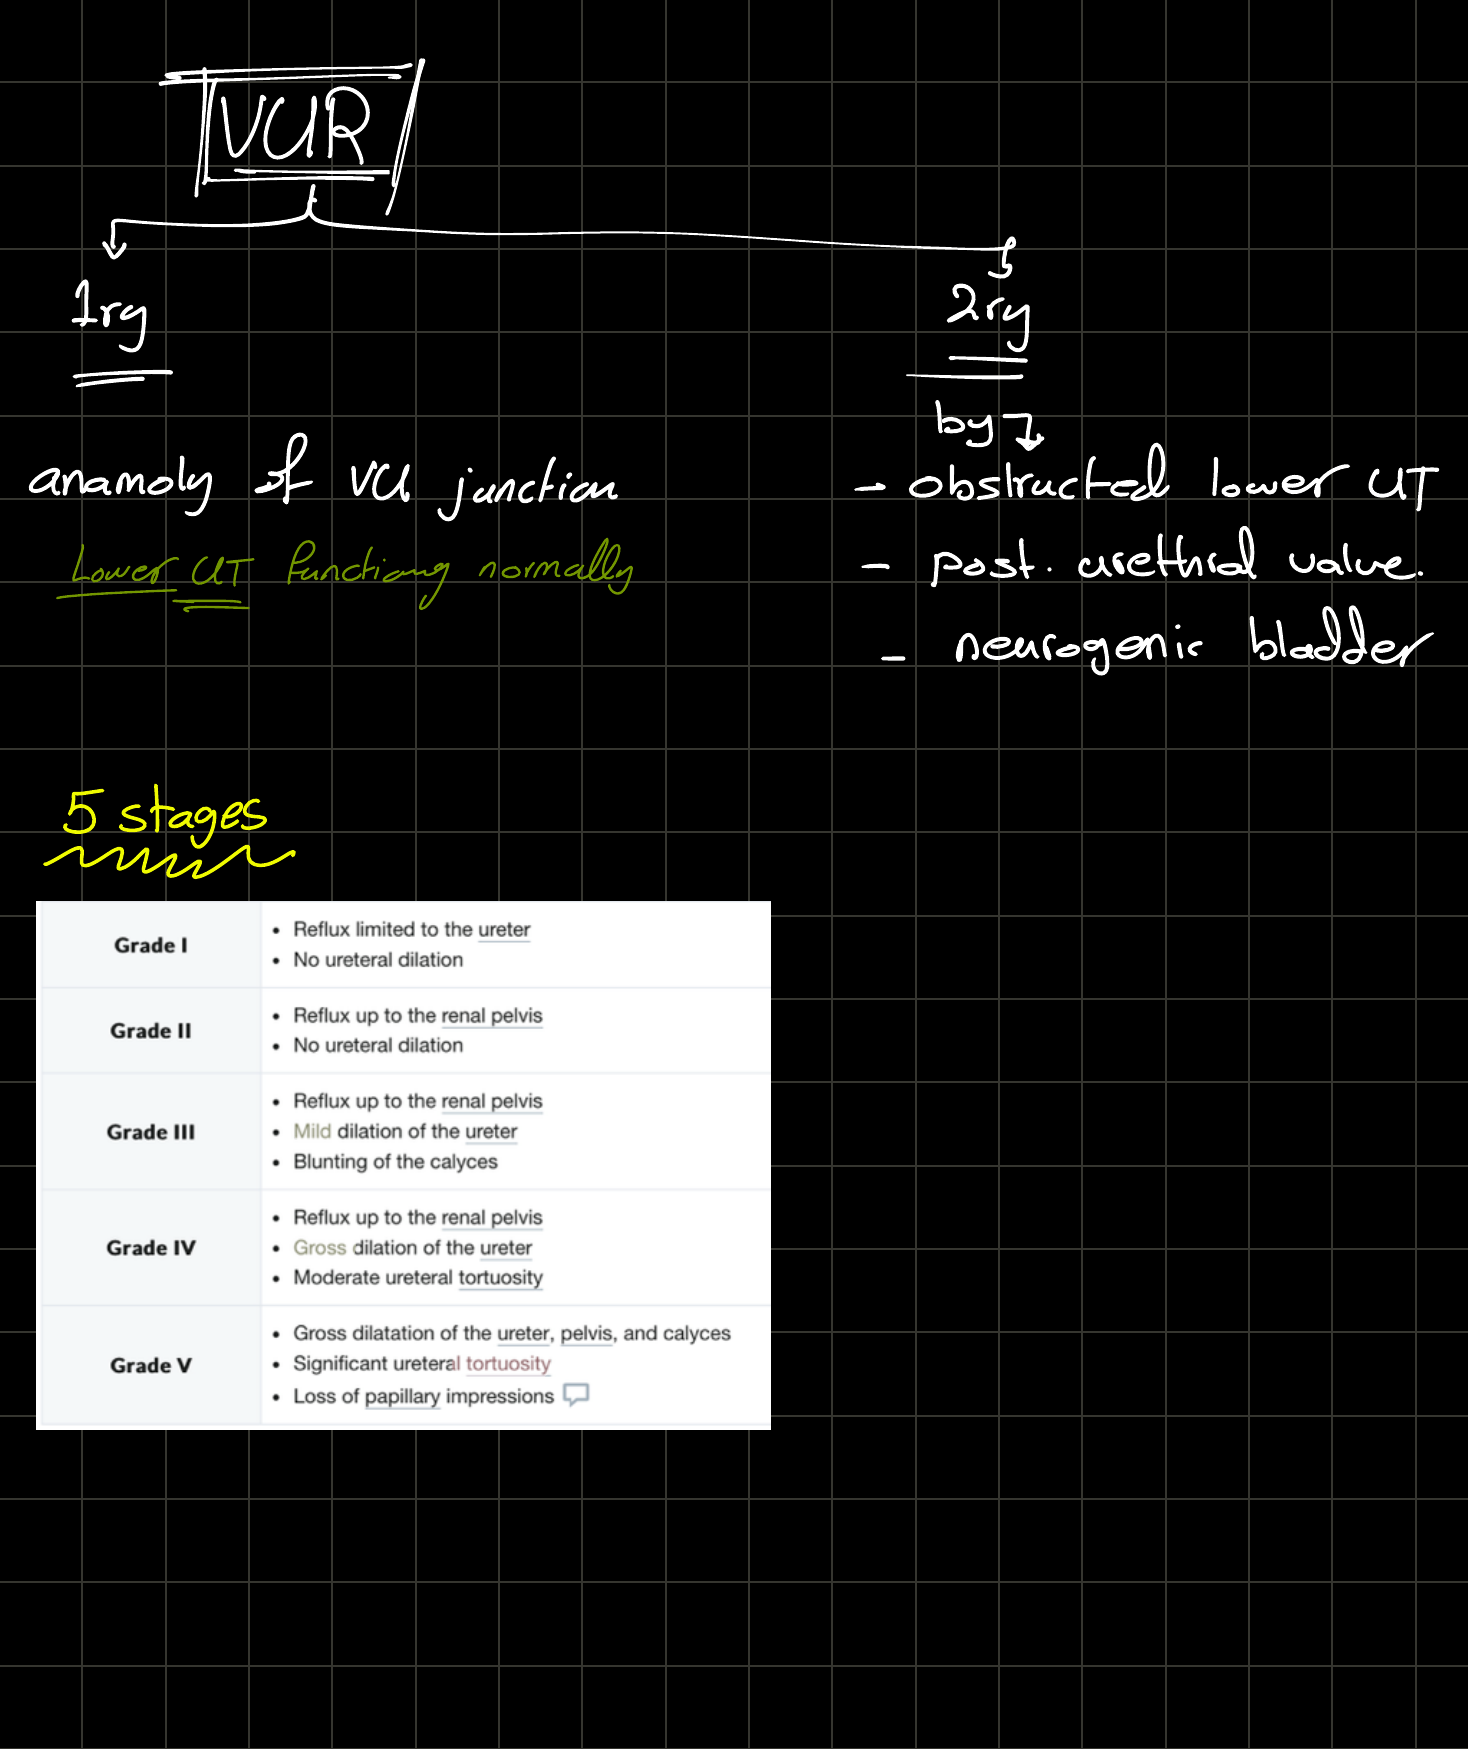 VUR
1ry
anamoly of VU junction
Lower UT functiong normally
2ry
by
- obstructed lower UT
- post. urethral value.
- neurogenic bladder
5 stages
Grade I
• Reflux limited to the ureter
• No ureteral dilation
Grade II
• Reflux up to the renal pelvis
• No ureteral dilation
Grade III
• Reflux up to the renal pelvis
• Mild dilation of the ureter
• Blunting of the calyces
Grade IV
• Reflux up to the renal pelvis
• Gross dilation of the ureter
• Moderate ureteral tortuosity
Grade V
• Gross dilatation of the ureter, pelvis, and calyces
• Significant ureteral tortuosity
• Loss of papillary impressions